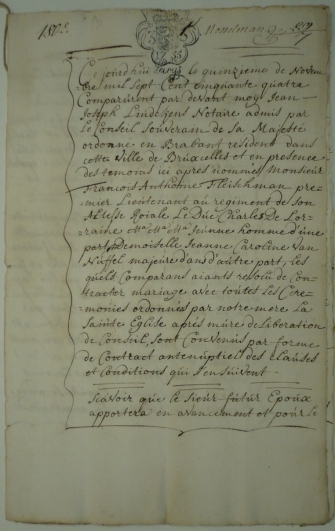 Ce jourd'huy le quinzieme de Novem
bre mil sept Cent cinquante quatre
Comparurent par devant moy Jean
Joseph Lindekens Notaire admis par
le Conseil Souverain de sa Majesté
ordonné en Brabant resident dans
cette ville de Bruxcelles et en presence
des temoins icy après nommés Monsieur
François Anthoine Fleischman pre=
mier Lieutenant au regiment de son
Altesse Roiale Le Duc Charles De Lor=
raine jeune homme d'une
part, Demoiselle Jeanne Caroline van
Nuffel majeure dans d'autre part, les
quels Comparans aiants resolu de Con=
tracter mariage avec toutes les Cere=
monies ordonnées par notre mere La
Sainte Eglise après mûre deliberation
de Conseil, sont Convenus par forme
de Contract antenuptiel des clauses
et Conditions qui s'ensuivent
Scavoir que le sieur futur Epoux
apportera en avancement et pour le